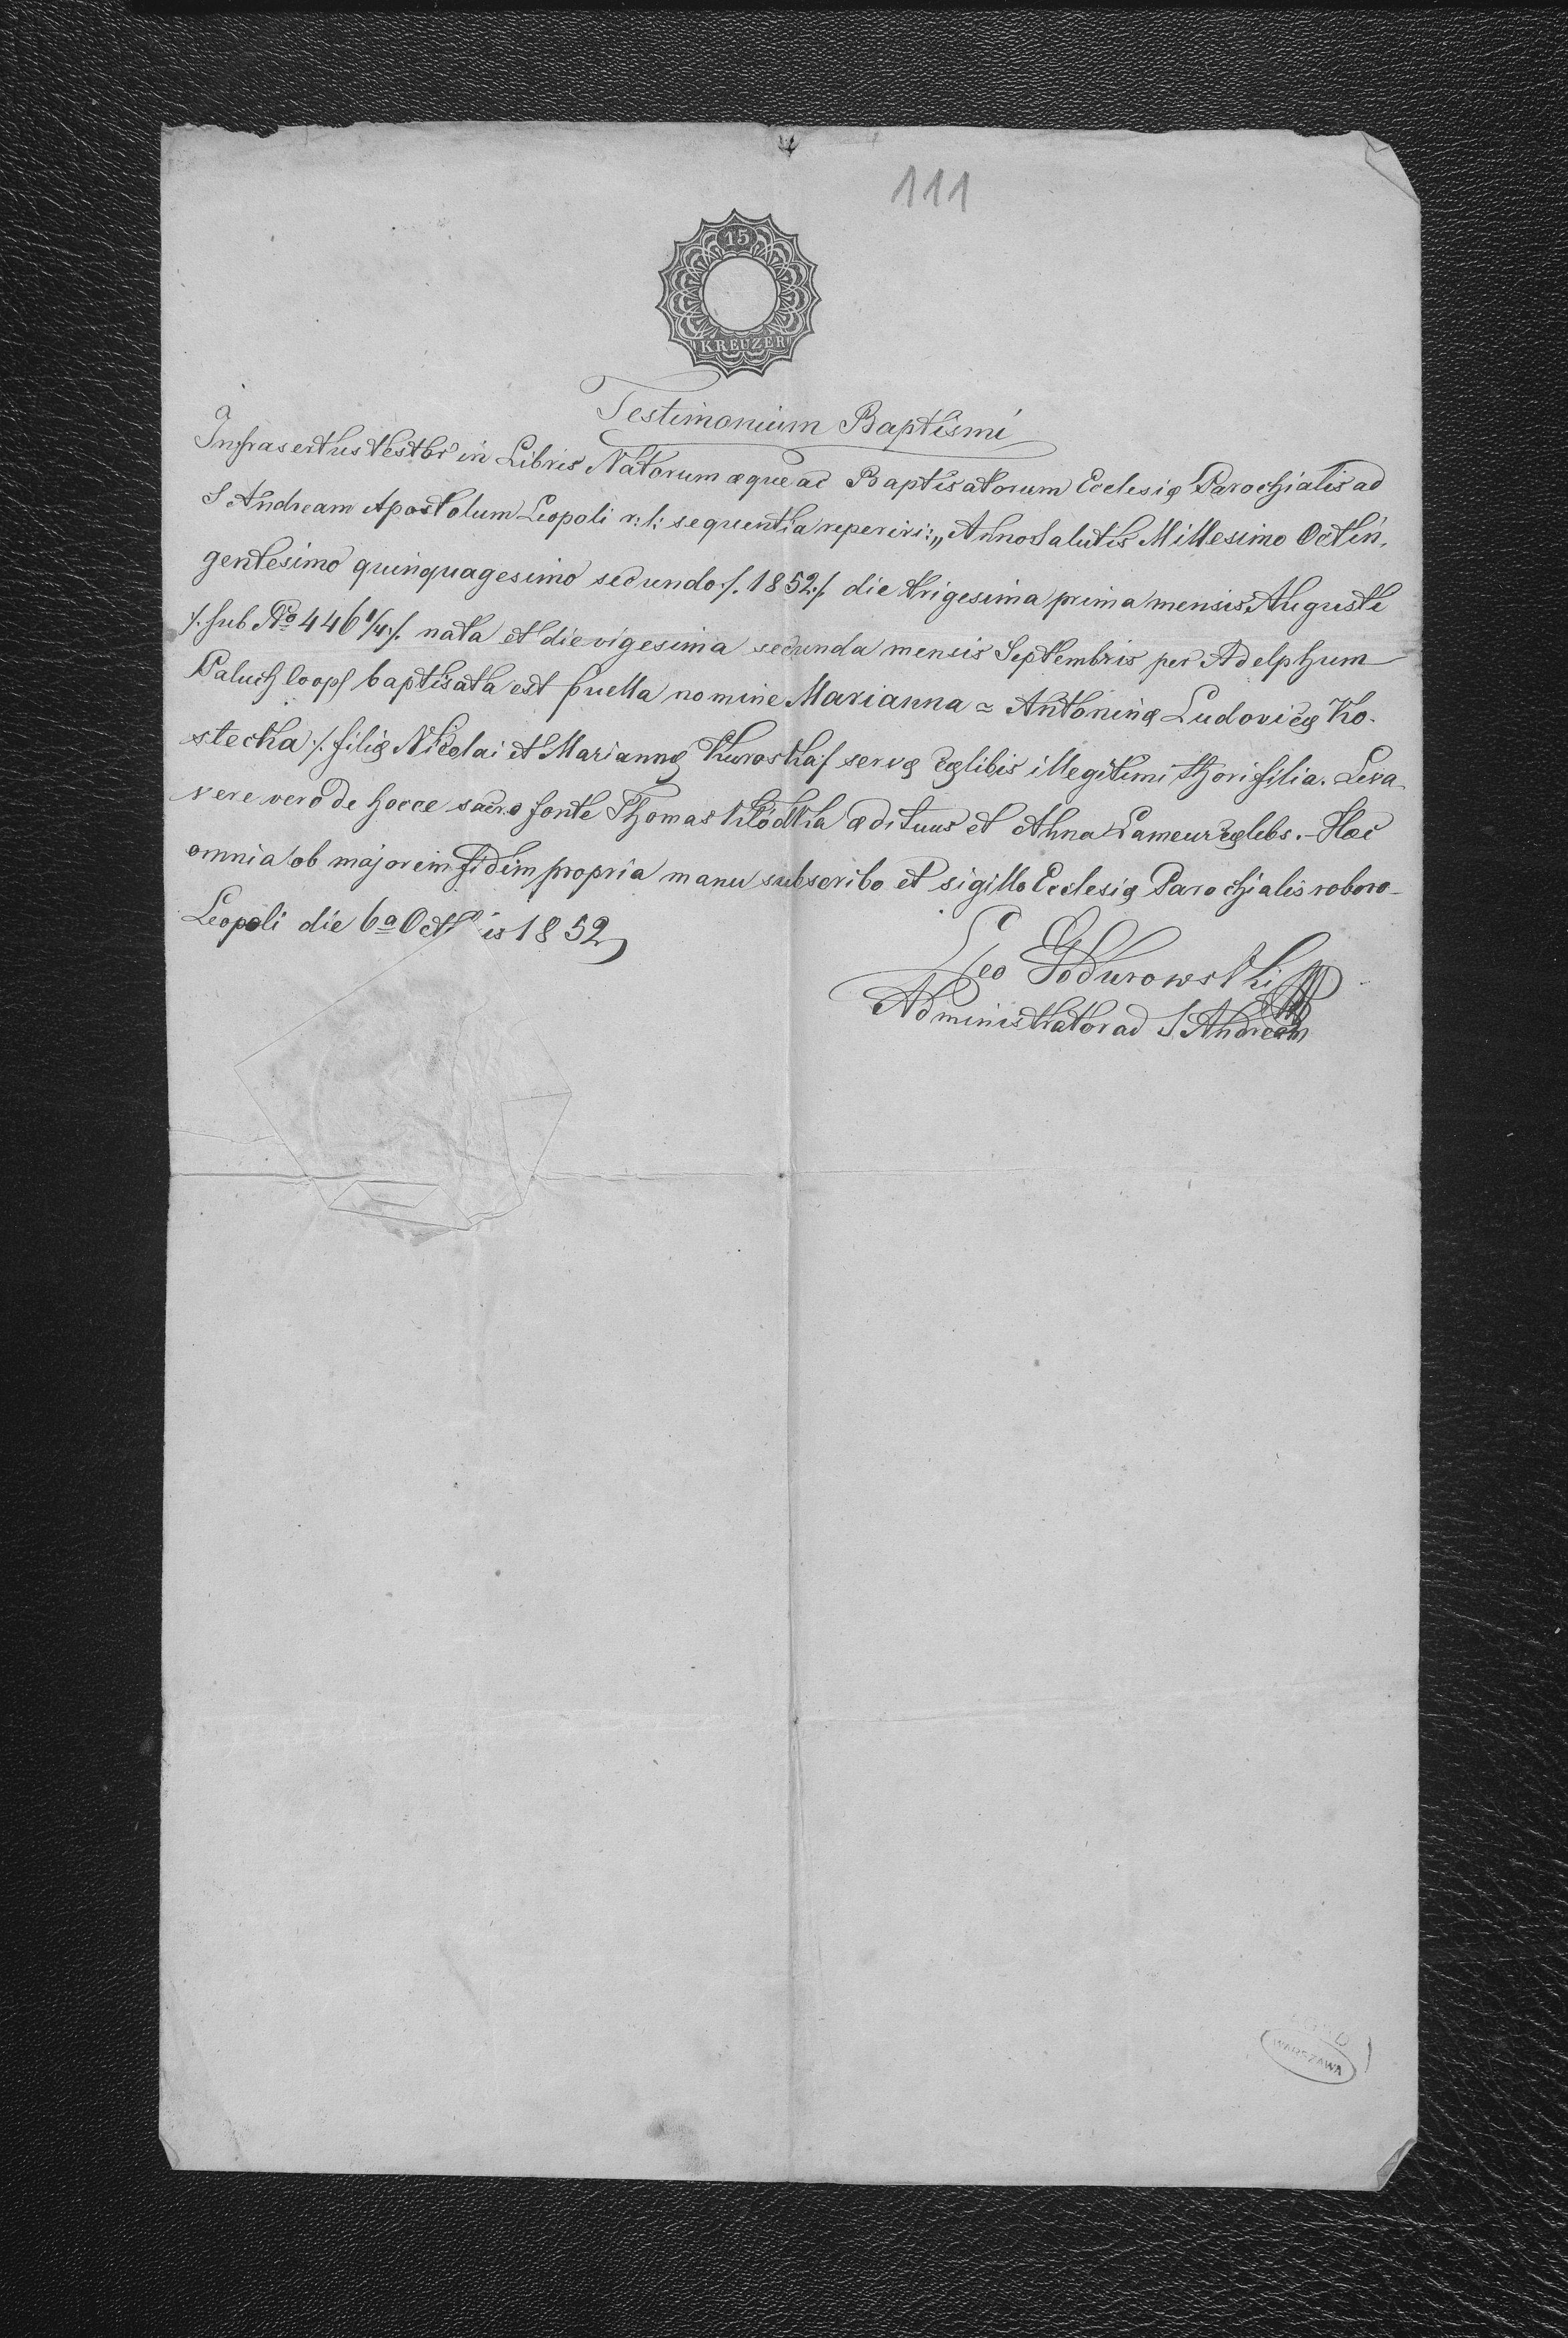 111
15
KREUZER
Testimonium Baptismi
Infrasertus testor in Libris Natorum æque ac Baptisatorum Ecclesię Parochialis ad
S Andream Apostolum Leopoli r: l: sequentia reperiri: „Anno Salutis Millesimo Octin,
gentesimo quinquagesimo secundo /. 1852 ./. die trigesima prima mensis Augusti
/. sub No 446 1/4 ./. nata et die vigesima secunda mensis Septembris per Adelphum
Paluch baptisata est puella nomine Marianna = Antoninę Ludovicę Ko-
stecka /. filię Nicolai et Mariannę Kuroska ./ servę cęlibis illegitimi thori filia. Leva
vere vero de hocce sacro fonte Thomas Kłódka ædituus et Anna Lameur cęlebs. - Hæc
omnia ob majorem fidem propria manu subscribo et sigillo Ecclesię Parochialis roboro -
Leopoli die 6a Octis 1852
Leo Godurowski
Administrator ad S Andream
AGAD
WARSZAWA